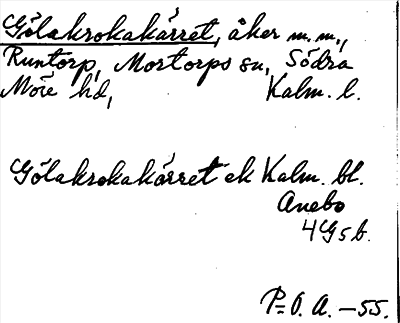 Gölakrokakärret, åker m.m.,
Runtorp, Mortorps sn, Södra
Möre hd, Kalm. l.
Gölakrokakärret ek Kalm. bl.
Anebo
4G5b.
P=O. A. -55.